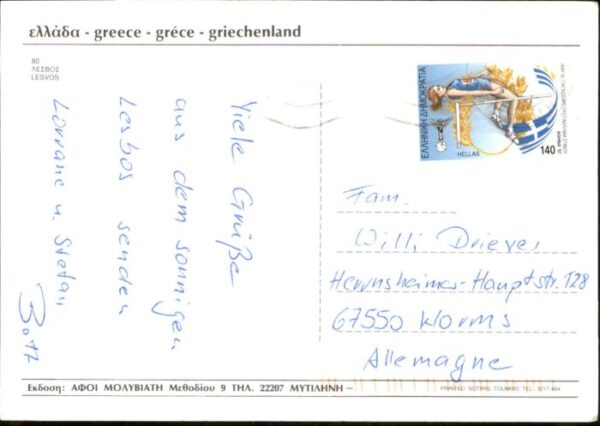 ελλάδα - greece - gréce - griechenland
80
ΛΕΣΒΟΣ
LESVOS
Viele Grüße
aus dem sonnigen
Lesbos senden
Lorrane u. Stefan
Bott
ΕΛΛΗΝΙΚΗ ΔΗΜΟΚΡΑΤΙΑ
HELLAS
140
Fam.
Willi Driever
Herrnsheimer-Hauptstr. 128
67550 Worms
Allemagne
Εκδοση: ΑΦΟΙ ΜΟΛΥΒΙΑΤΗ Μεθοδίου 9 ΤΗΛ. 22207 ΜΥΤΙΛΗΝΗ